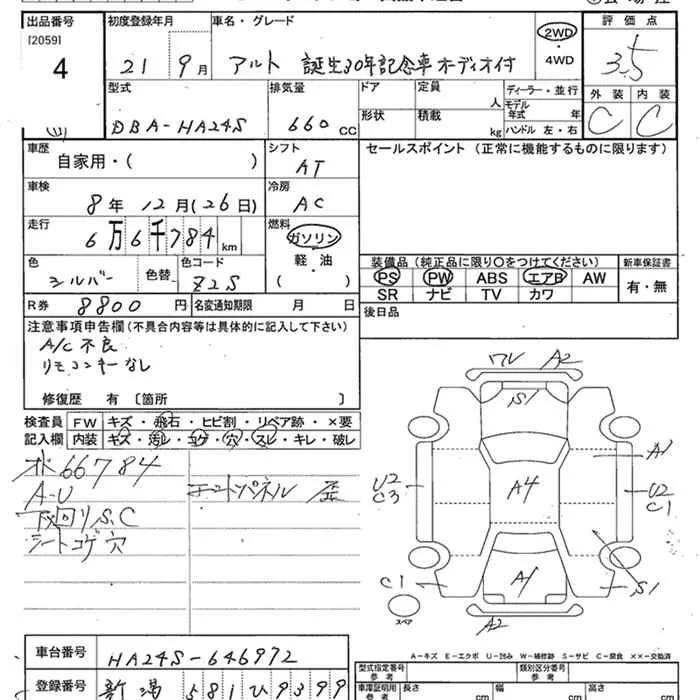 出品番号
[2059]
4
初度登録年月
21 9月
車名・グレード
アルト 誕生30年記念車オーディオ付
2WD
・
4WD
評価点
3.5
外装 内装
C C
型式
DBA-HA24S
排気量
660 CC
ドア
形状
定員
人
積載
kg
ディーラー・並行
モデル
年式 年
ハンドル 左・右
車歴
自家用・( )
シフト
AT
セールスポイント(正常に機能するものに限ります)
車検
8年 12月(26日)
冷房
AC
走行
6万6千784 km
燃料
ガソリン
軽・油
( )
色
シルバー
色替
色コード
Z2S
装備品(純正品に限り○をつけてください)
PS PW ABS エアB AW
SR ナビ TV カワ
新車保証書
有・無
R券
8800円
名変通知期限 月 日
後日品
注意事項申告欄(不具合内容等は具体的に記入して下さい)
A/C不良
リモコンキーなし
修復歴 有 〔箇所 〕
検査員
記入欄
FW キズ・飛石・ヒビ割・リペア跡・×要
内装 キズ・汚レ・コゲ・穴・スレ・キレ・破レ
66784
A-U
下回りS.C
シートコゲ穴
ワレ A2
S1
A1
U2
C3
A4
U2
C1
C1
A1
S1
A2
スペア
A-キズ E-エクボ U-凹み W-補修跡 S-サビ C-腐食 XX-交換済
車台番号
HA24S-646972
登録番号
新潟 581 ひ 9399
型式指定番号
参考
類別区分番号
参考
車庫証明用
参考
長さ cm
幅 cm
高さ cm